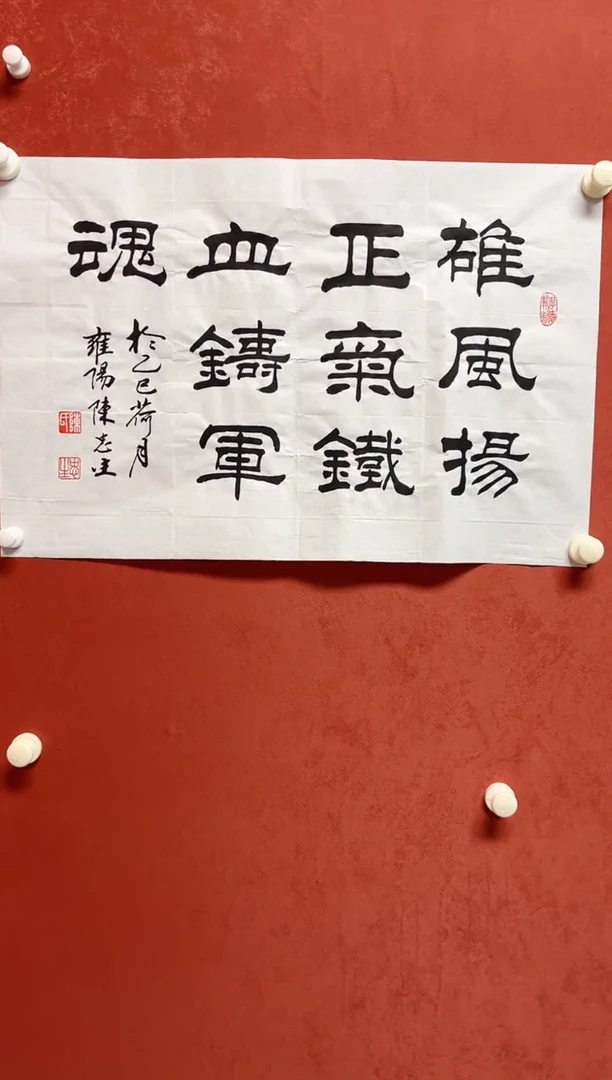 雄風揚
正氣鐵
血鑄軍
魂
於乙巳荷月
雍陽陳志